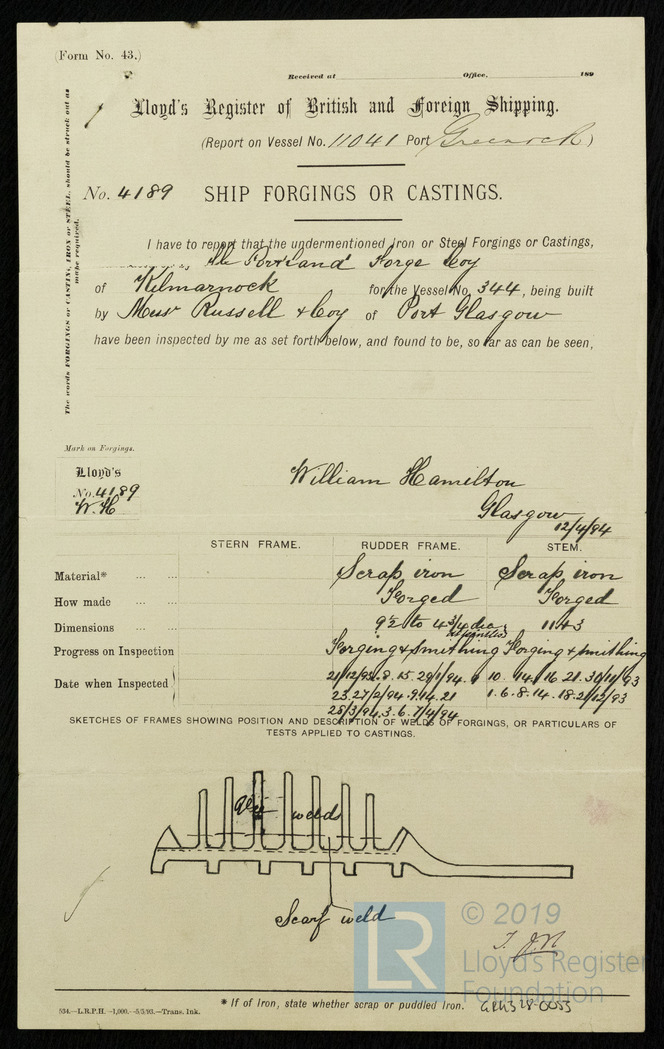 (Form No. 43.)
Received at Office, 189
Lloyd's Register of British and Foreign Shipping.
(Report on Vessel No. 11041 Port Greenock)
No. 4189 SHIP FORGINGS OR CASTINGS.
The words FORGINGS or CASTINGS, IRON or STEEL, should be struck out as
may be required.
I have to report that the undermentioned Iron or Steel Forgings or Castings,
The Portland Forge Coy
of Kilmarnock for the Vessel No. 344, being built
by Messrs Russell & Coy of Port Glasgow
have been inspected by me as set forth below, and found to be, so far as can be seen,
Mark on Forgings.
Lloyd's
No. 4189
W.H
William Hamilton
Glasgow
12/4/94
STERN FRAME. RUDDER FRAME. STEM.
Material* ... ... Scrap iron Scrap iron
How made ... ... Forged Forged
Dimensions ... ... 9½ to 4¾ dia 11 × 3
Progress on Inspection Forging & smithing Forging & smithing
Date when Inspected 21/12/93. 8. 15. 29/1/94. 9 10. 14. 16. 21. 30/11/93
23. 27/2/94. 9. 14. 21 1. 6. 8. 14. 18. 21/12/93
28/3/94. 3. 6. 7/4/94
SKETCHES OF FRAMES SHOWING POSITION AND DESCRIPTION OF WELDS OF FORGINGS, OR PARTICULARS OF
TESTS APPLIED TO CASTINGS.
welds
Scarf weld
LR
© 2019
Lloyd's Register
Foundation
T. J.N
* If of Iron, state whether scrap or puddled Iron.
GRK328-0053
534.—L.R.P.H.—1,000.—5/5/93.—Trans. Ink.